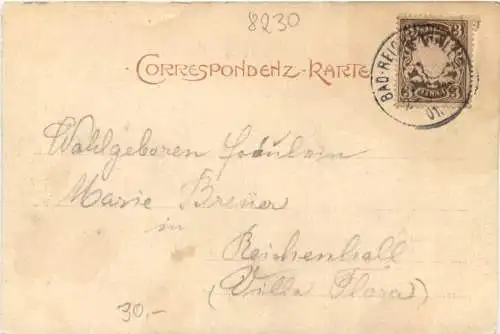 8230
CORRESPONDENZ-KARTE
3 3
BAD-REIC
3 PFENNIG 3
01.
Wohlgeboren Fräulein
Marie Breüer
in
Reichenhall
(Villa Flora)
30,-